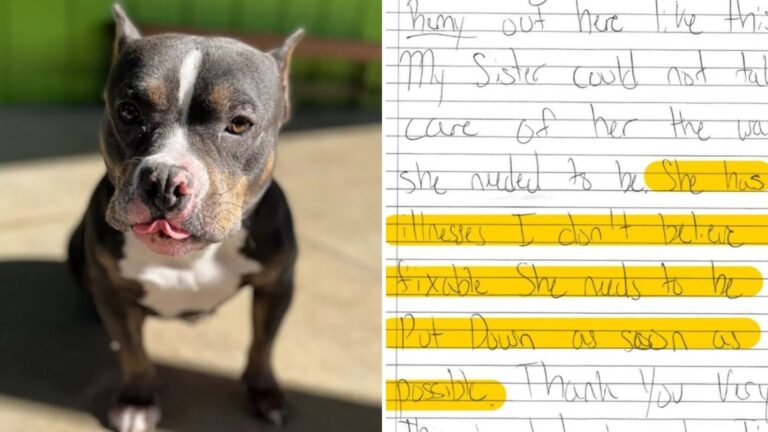 Remy out here like this
My Sister could not tak
care of her the wa
she needed to be. She has
illnesses I don't believe
fixable She needs to be
Put Down as soon as
possible. Thank You Very